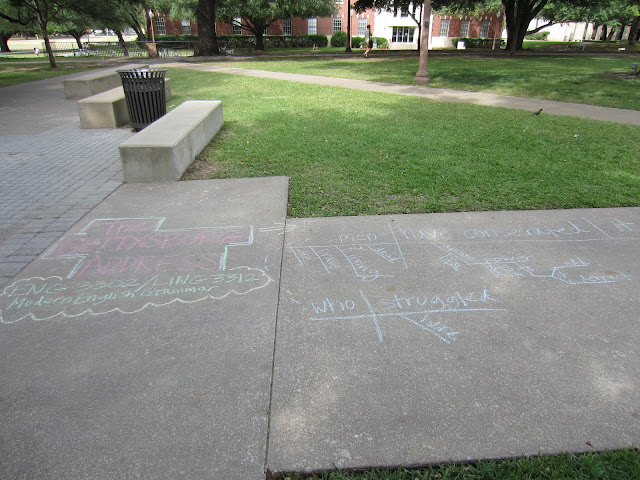 THE
GETTYSBURG
ADDRESS
ENG 3302/LING 3312
Modern English Grammar
men have consecrated it
living dead
power add
detract
who struggled
here